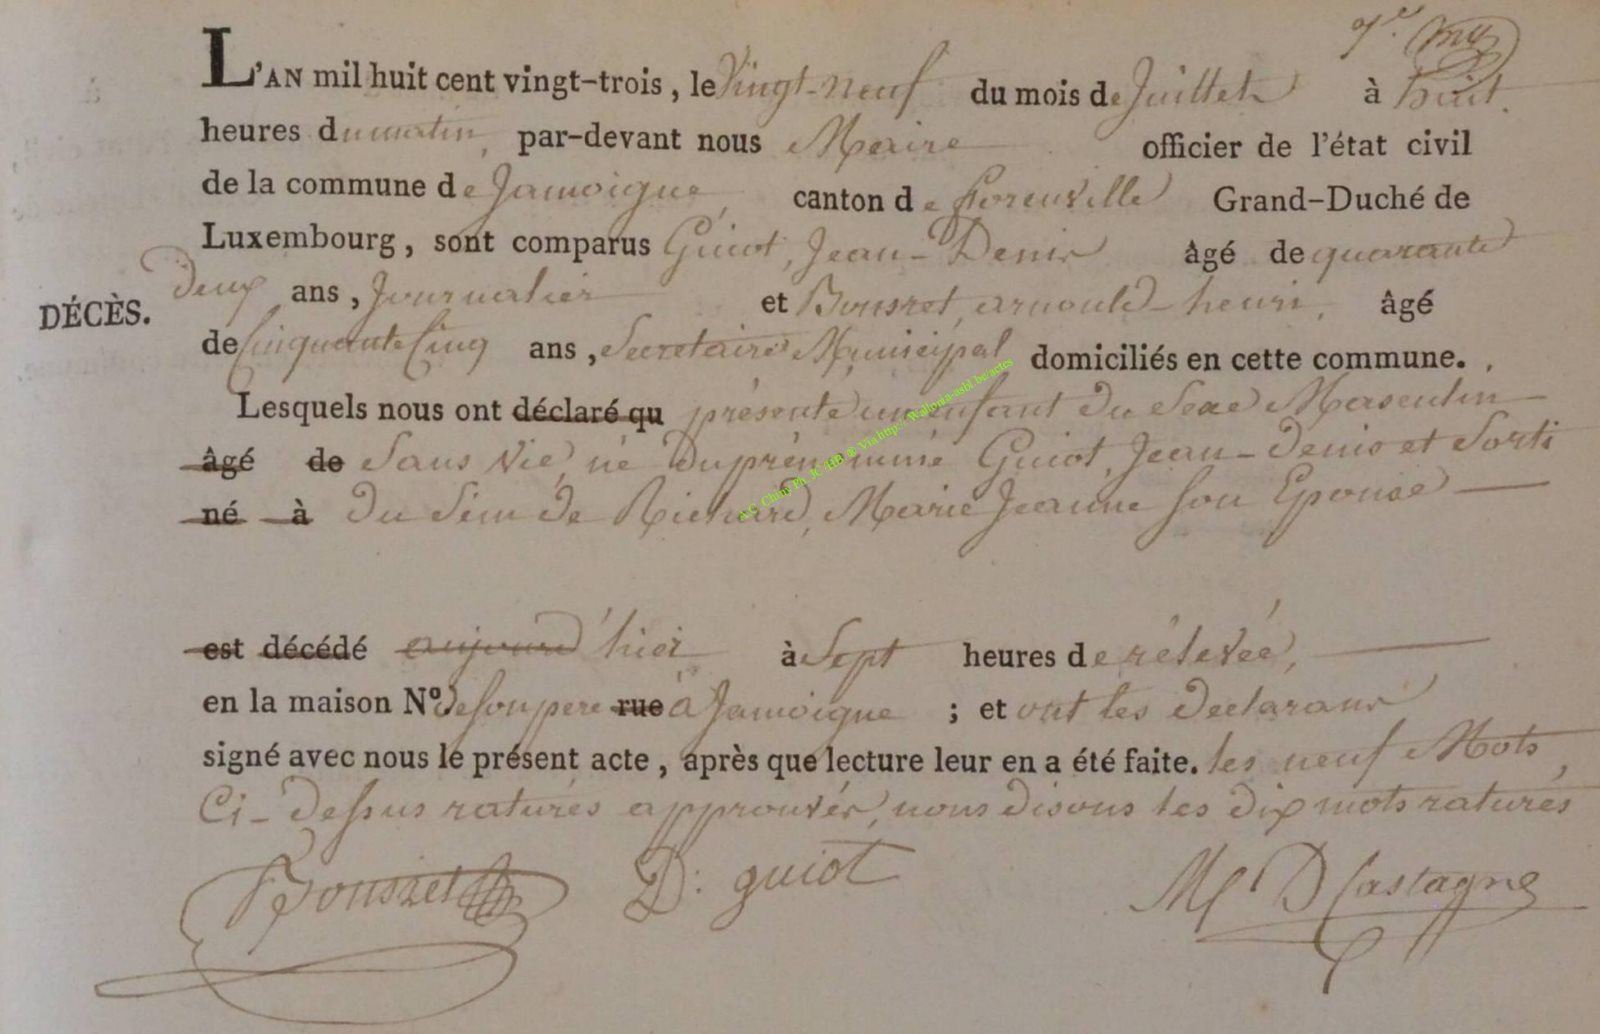 7.e
L'AN mil huit cent vingt-trois, le Vingt-neuf du mois de Juillet à huit
heures du matin, par-devant nous Maire officier de l'état civil
de la commune de Jamoigne, canton de florenville Grand-Duché de
Luxembourg, sont comparus Guiot, Jean-Denis âgé de quarante
deux ans, Journalier et Bousret, arnould-henri, âgé
DÉCÈS.
de Cinquante Cinq ans, Secretaire Municipal domiciliés en cette commune.
Lesquels nous ont déclaré qu présenté un enfant du Sexe Masculin
âgé de Sans Vie, né du prénommé Guiot, Jean-Denis et Sorti
né à du Sein de Richard, Marie Jeanne Son Epouse
est décédé aujourd'hier à Sept heures de rélevée,
en la maison N.º de son pere rue à Jamoigne ; et ont les Declarans
signé avec nous le présent acte, après que lecture leur en a été faite. les neuf Mots,
Ci-dessus raturés approuvés, nous disons les dix mots raturés
Bousret D: guiot M D Castagne
A.C. Chiny Ph JC /HB ® Via http://Wallonia-asbl.be/actes